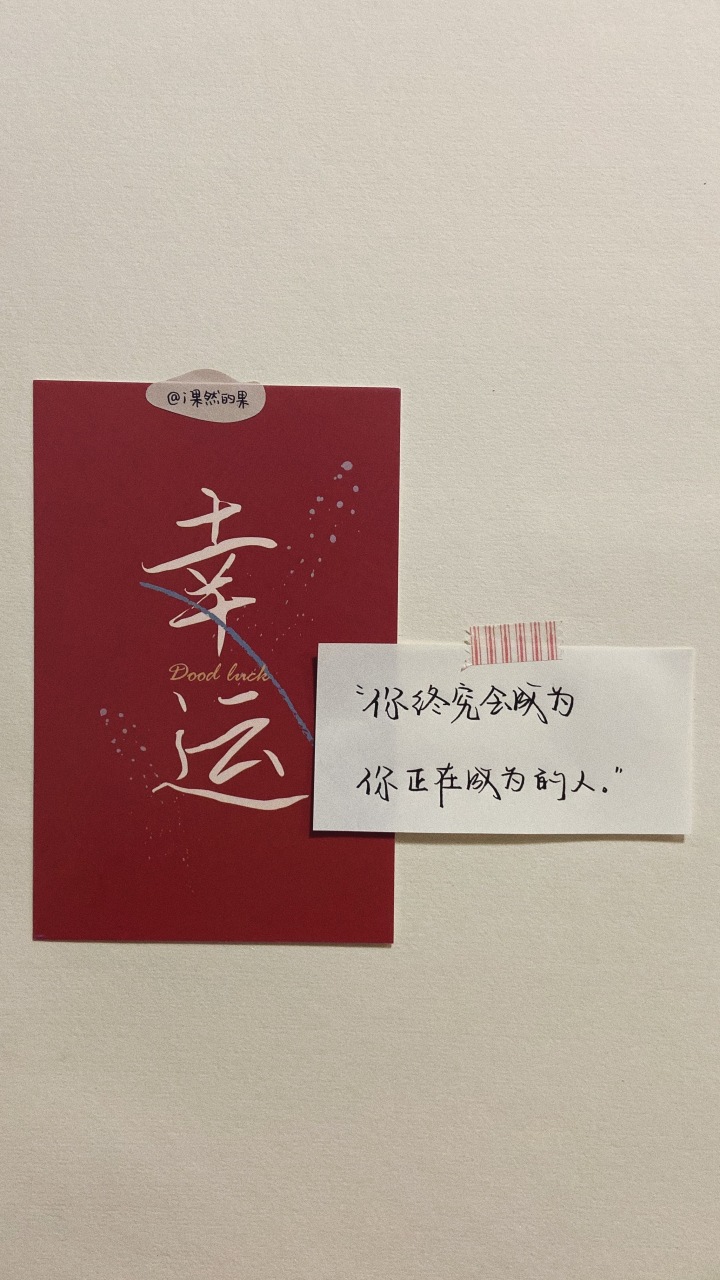 @i果然的果
幸
Dood luck
运
“你终究会成为
你正在成为的人.”